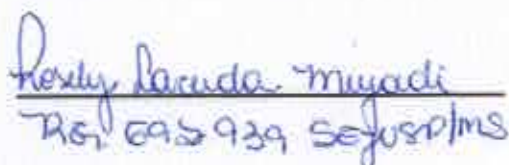 Rosely Lacerda Miyadi
RG 695939 SEJUSP/MS